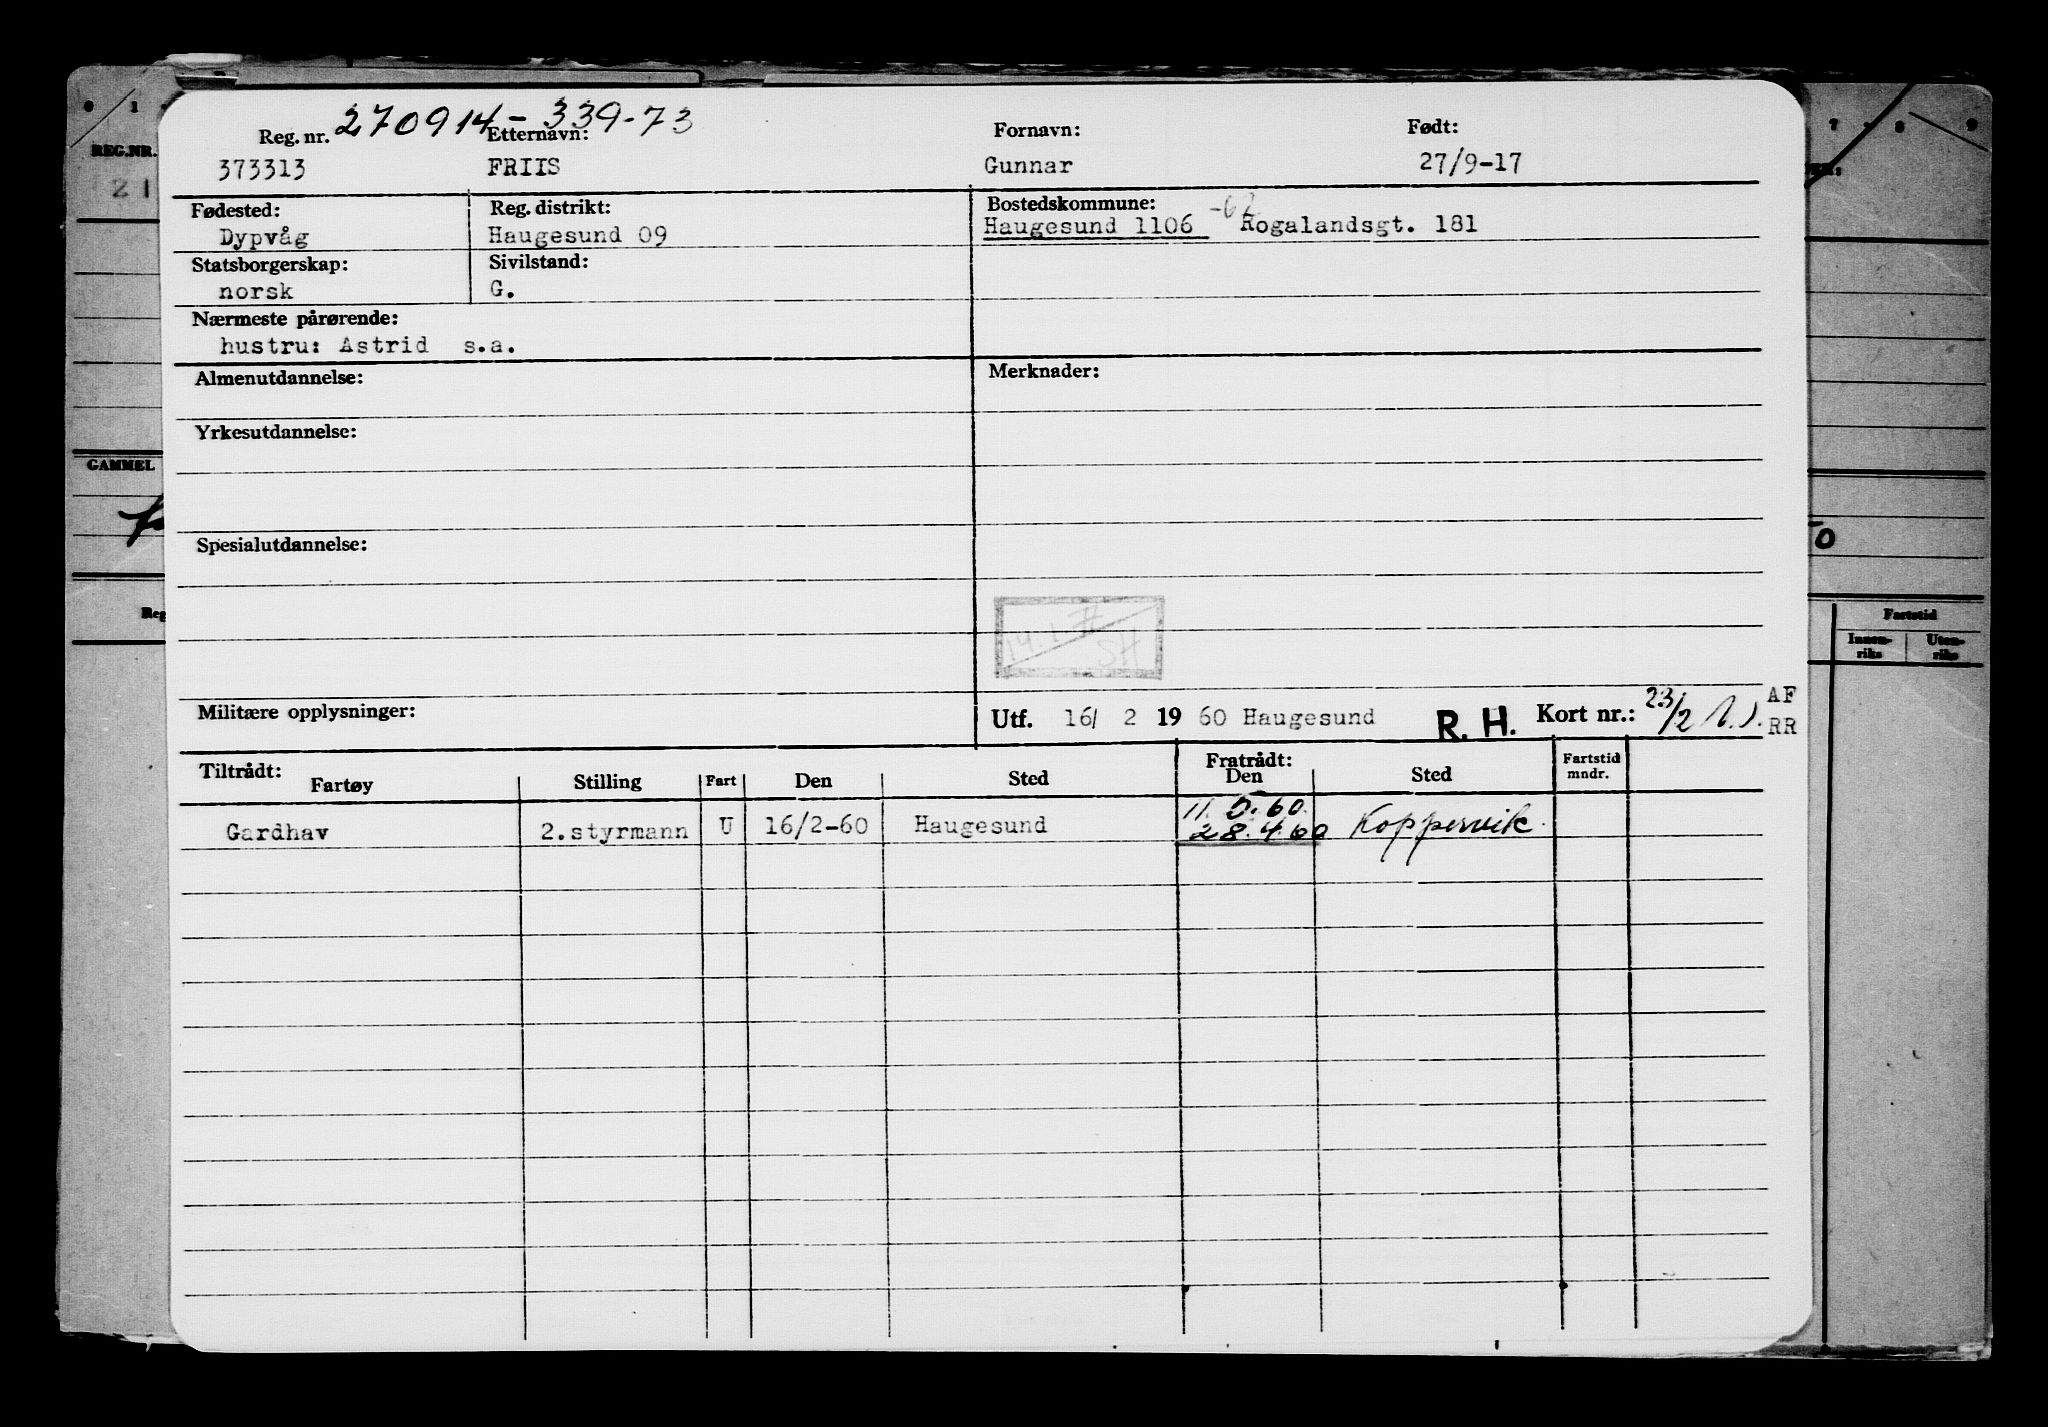 270914-339-73
Reg. nr. Etternavn: Fornavn: Født:
373313 FRIIS Gunnar 27/9-17
Fødested: Reg. distrikt: Bostedskommune:
Dypvåg Haugesund 09 Haugesund 1106 -62 Rogalandsgt. 181
Statsborgerskap: Sivilstand:
norsk G.
Nærmeste pårørende:
hustru: Astrid s.a.
Almenutdannelse: Merknader:
Yrkesutdannelse:
Spesialutdannelse:
SH
Militære opplysninger: Utf. 16/ 2 19 60 Haugesund R. H. Kort nr.: 23/2 AF
RR
Tiltrådt: Fratrådt: Fartstid
Fartøy Stilling Fart Den Sted Den Sted mndr.
11. 60.
Gardhav 2.styrmann U 16/2-60 Haugesund 28.4.60 Koppervik.
0 1
REG.NR.
21
GAMMEL
Reg
7 8 9
50
Fartstid
Innen-
riks
Uten-
riks